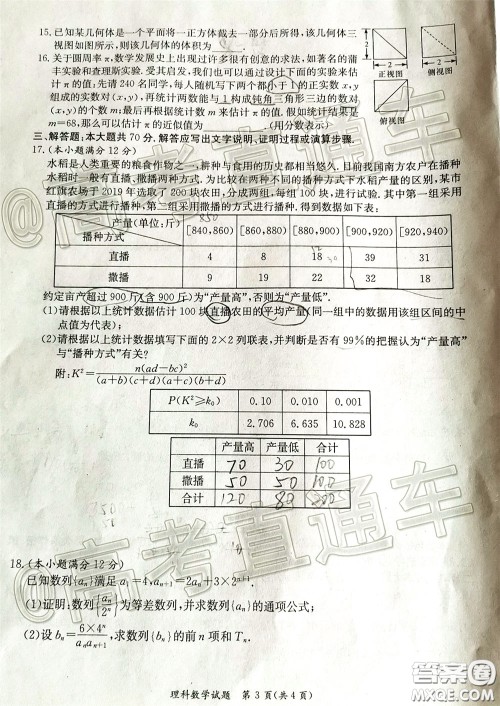 15.已知某几何体是一个平面将一正方体截去一部分后所得,该几何体三
视图如图所示,则该几何体的体积为____.
2
2
正视图
2
侧视图
俯视图
16.关于圆周率π,数学发展史上出现过许多很有创意的求法,如著名的蒲
丰实验和查理斯实验.受其启发,我们也可以通过设计下面的实验来估
计π的值:先请240名同学,每人随机写下两个都小于1的正实数x,y
组成的实数对(x,y),再统计两数能与1构成钝角三角形三边的数对
(x,y)的个数m;最后再根据统计数m来估计π的值.假如统计结果是
m=68,那么可以估计π的近似值为____.(用分数表示)
三、解答题:本大题共70分.解答应写出文字说明、证明过程或演算步骤.
17.(本小题满分12分)
水稻是人类重要的粮食作物之一,耕种与食用的历史都相当悠久.目前我国南方农户在播种
水稻时一般有直播、撒播两种方式.为比较在两种不同的播种方式下水稻产量的区别,某市
红旗农场于2019年选取了200块农田,分成两组,每组100块,进行试验.其中第一组采用
直播的方式进行播种,第二组采用撒播的方式进行播种.得到数据如下表:
产量(单位:斤) [840,860) [860,880) [880,900) [900,920) [920,940)
播种方式
直播 4 8 18 39 31
撒播 9 19 22 32 18
约定亩产超过900斤(含900斤)为“产量高”,否则为“产量低”.
(1)请根据以上统计数据估计100块直播农田的平均产量(同一组中的数据用该组区间的中
点值为代表);
(2)请根据以上统计数据填写下面的2×2列联表,并判断是否有99%的把握认为“产量高”
与“播种方式”有关?
附:K²=n(ad−bc)²/((a+b)(c+d)(a+c)(b+d))
P(K²⩾k₀) 0.10 0.010 0.001
k₀ 2.706 6.635 10.828
产量高 产量低 合计
直播 70 30 100
撒播 50 50 100
合计 120 80 200
18.(本小题满分12分)
已知数列{aₙ}满足a₁=4,aₙ₊₁=2aₙ+3×2ⁿ⁺¹.
(1)证明:数列{aₙ/2ⁿ}为等差数列,并求数列{aₙ}的通项公式;
(2)设bₙ=6×4ⁿ/(aₙaₙ₊₁),求数列{bₙ}的前n项和Tₙ.
理科数学试题 第3页(共4页)
@高考直通车
@高考直通车
答案圈
MXQE.COM